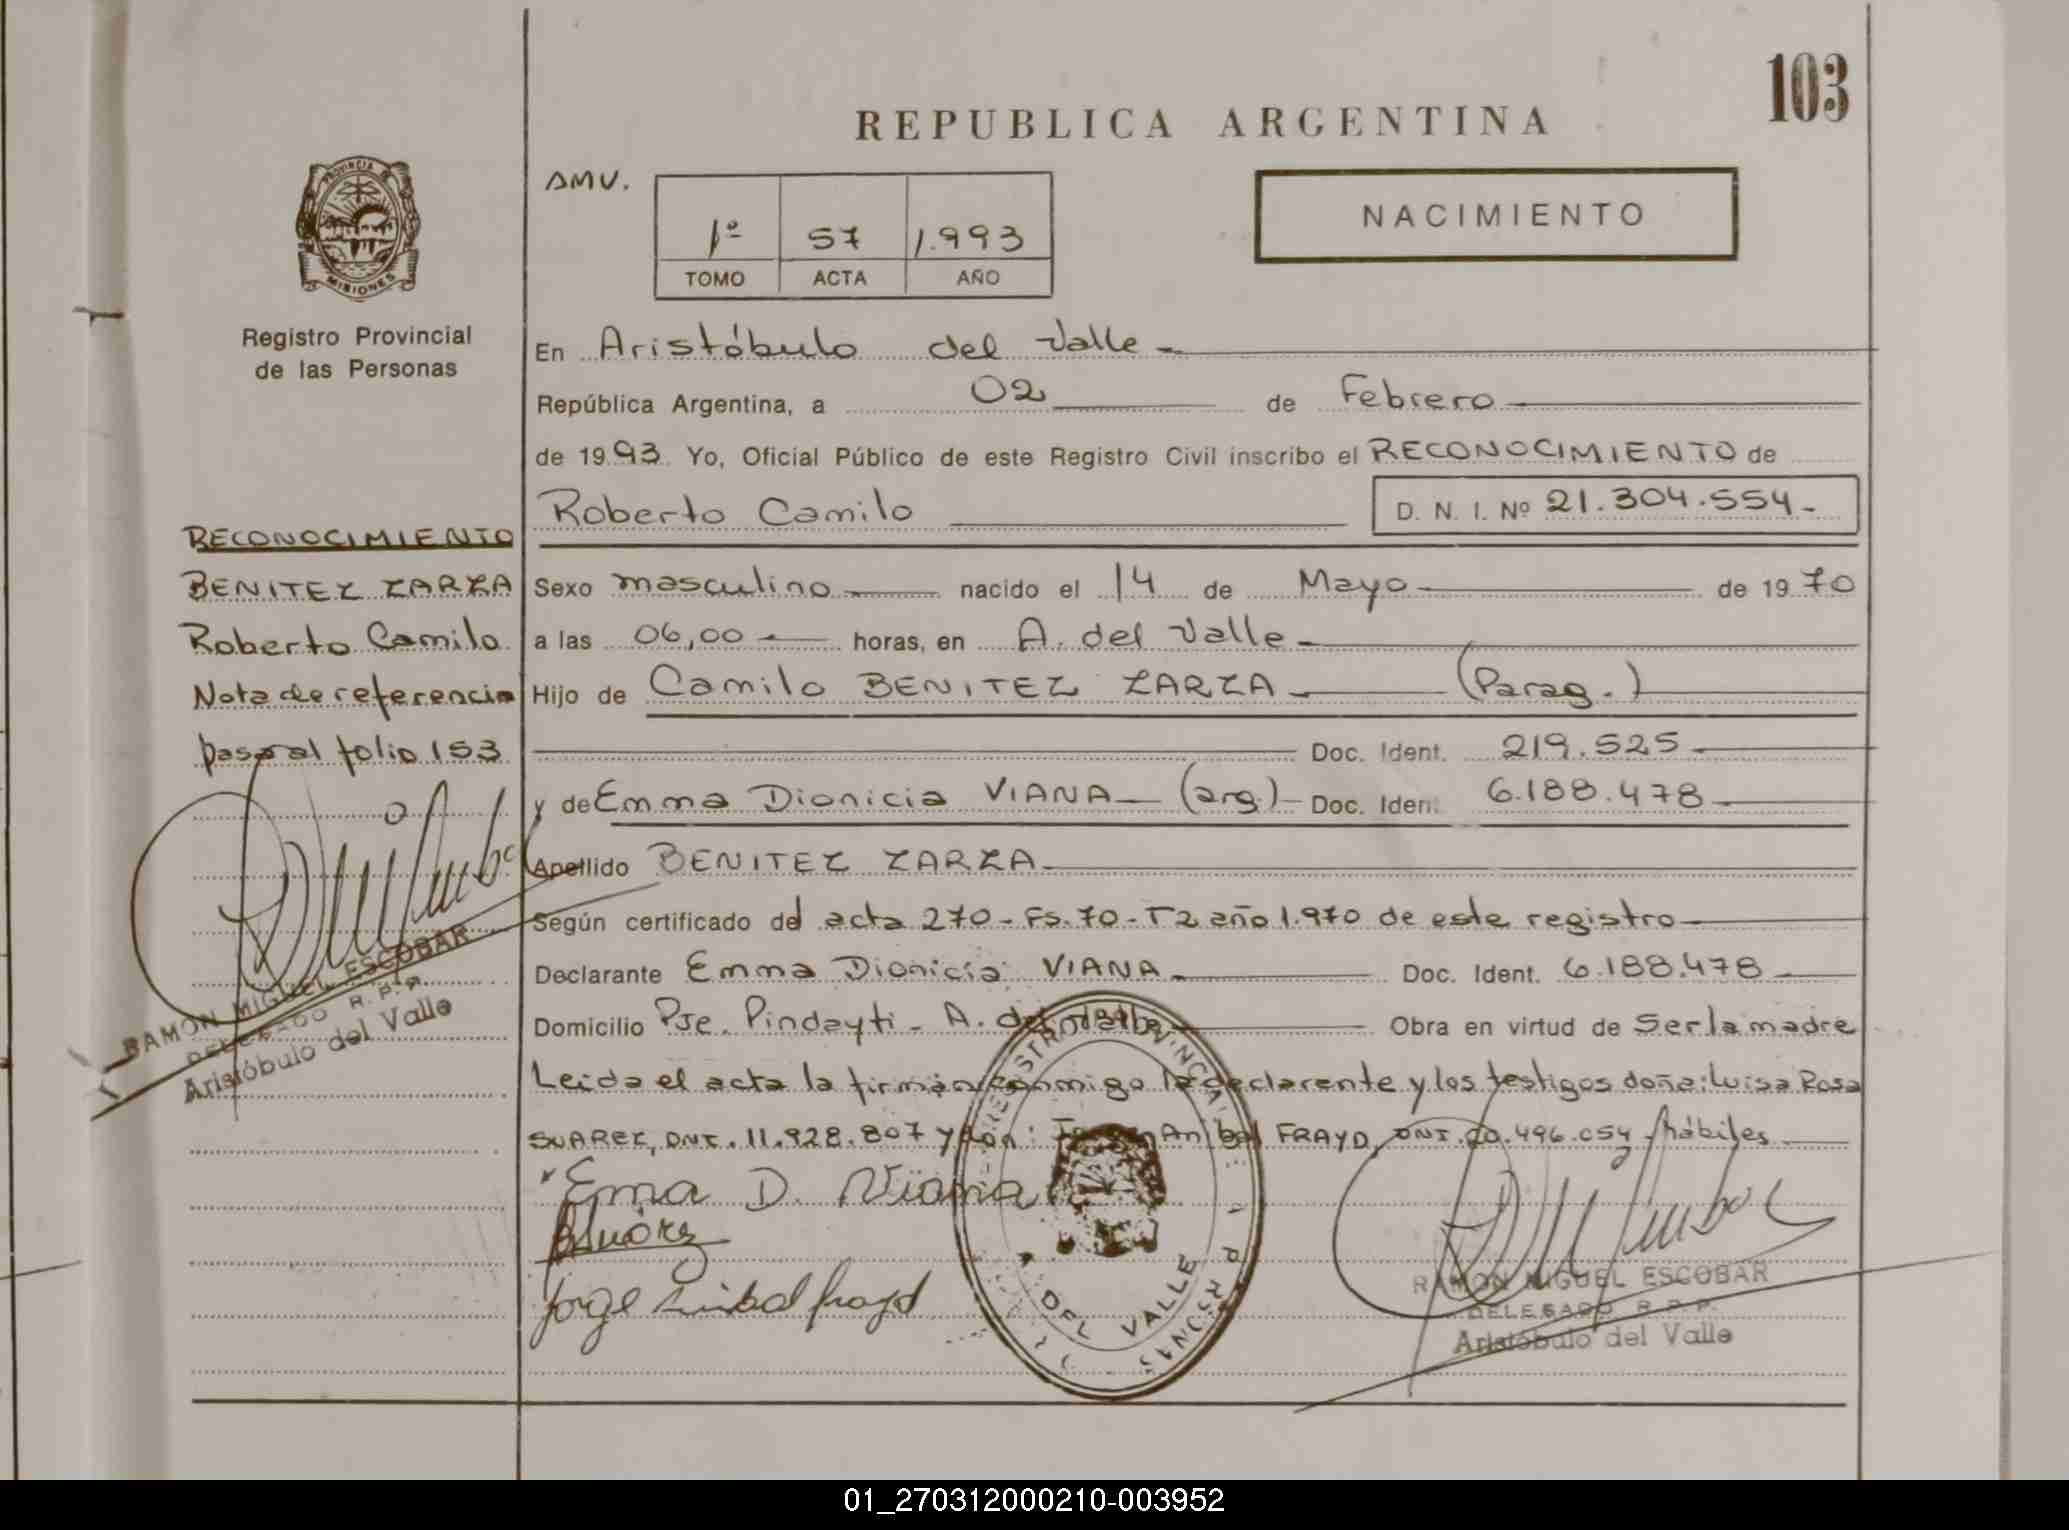 103
REPUBLICA ARGENTINA
AMV.
1º 57 1.993
TOMO ACTA AÑO
NACIMIENTO
PROVINCIA DE
MISIONES
Registro Provincial
de las Personas
En Aristóbulo del Valle
República Argentina, a 02 de Febrero
de 1993 Yo, Oficial Público de este Registro Civil inscribo el RECONOCIMIENTO de
Roberto Camilo D. N. I. Nº 21.304.554.-
Sexo masculino nacido el 14 de Mayo de 1970
a las 06,00 horas, en A. del Valle
Hijo de Camilo BENITEZ ZARZA (Parag.)
Doc. Ident. 219.525
y de Emma Dionicia VIANA (arg.) Doc. Iden. 6.188.478
Apellido BENITEZ ZARZA
Según certificado del acta 270 - Fs. 70 - T2 año 1.970 de este registro
Declarante Emma Dionicia VIANA Doc. Ident. 6.188.478
Domicilio Pje. Pindayti - A. del Valle Obra en virtud de Ser la madre
Leida el acta la firman conmigo la declarente y los testigos doña: Luisa Rosa
SUAREZ, DNI. 11.928.807 y don: Anibal FRAYD, DNI. 20.496.054, hábiles
Ema D. Viana
Suárez
Jorge Anibal frayd
REGISTRO PROVINCIAL
PERSONAS
DEL VALLE
RAMON MIGUEL ESCOBAR
DELEGADO R. P. P.
Aristóbulo del Valle
RECONOCIMIENTO
BENITEZ ZARZA
Roberto Camilo
Nota de referencia
pasa al folio 153
RAMON MIGUEL ESCOBAR
DELEGADO R. P. P.
Aristóbulo del Valle
01_270312000210-003952